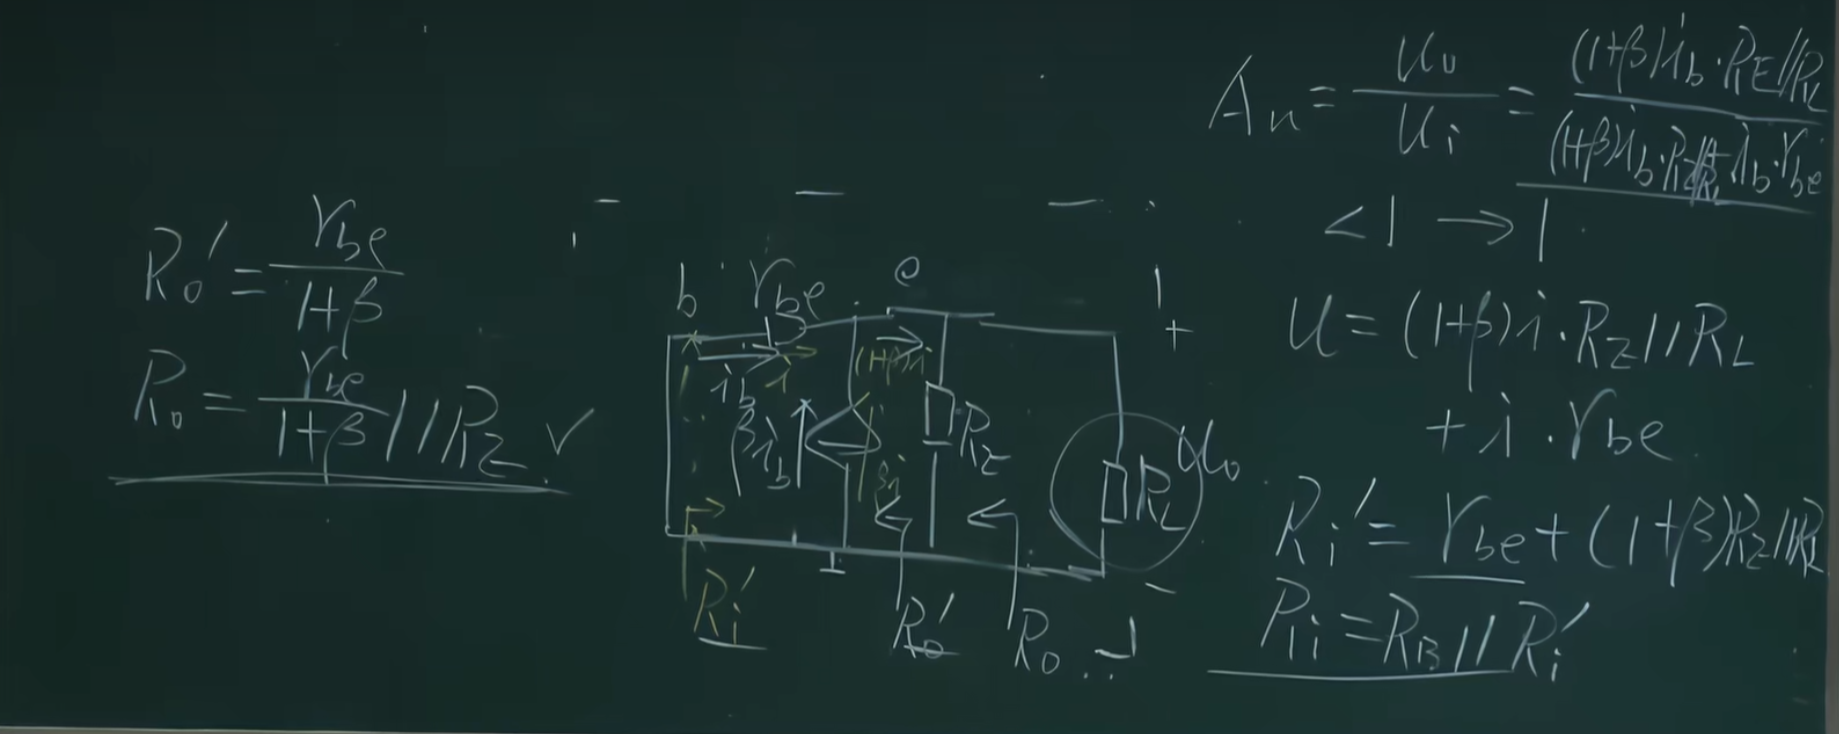 Ro' = rbe / 1+β
Ro = rbe / 1+β // RZ ✓
b rbe e
ib i (1+β)i
βib βi RE RL uo
+
-
Ri' Ro' Ro
Au = uo / ui = (1+β)ib·RE//RL / (1+β)ib·RE//RL+ib·rbe
<1 → 1
U = (1+β)i·RZ//RL
+ i·rbe
Ri' = rbe + (1+β)RZ//RL
Ri = RB // Ri'